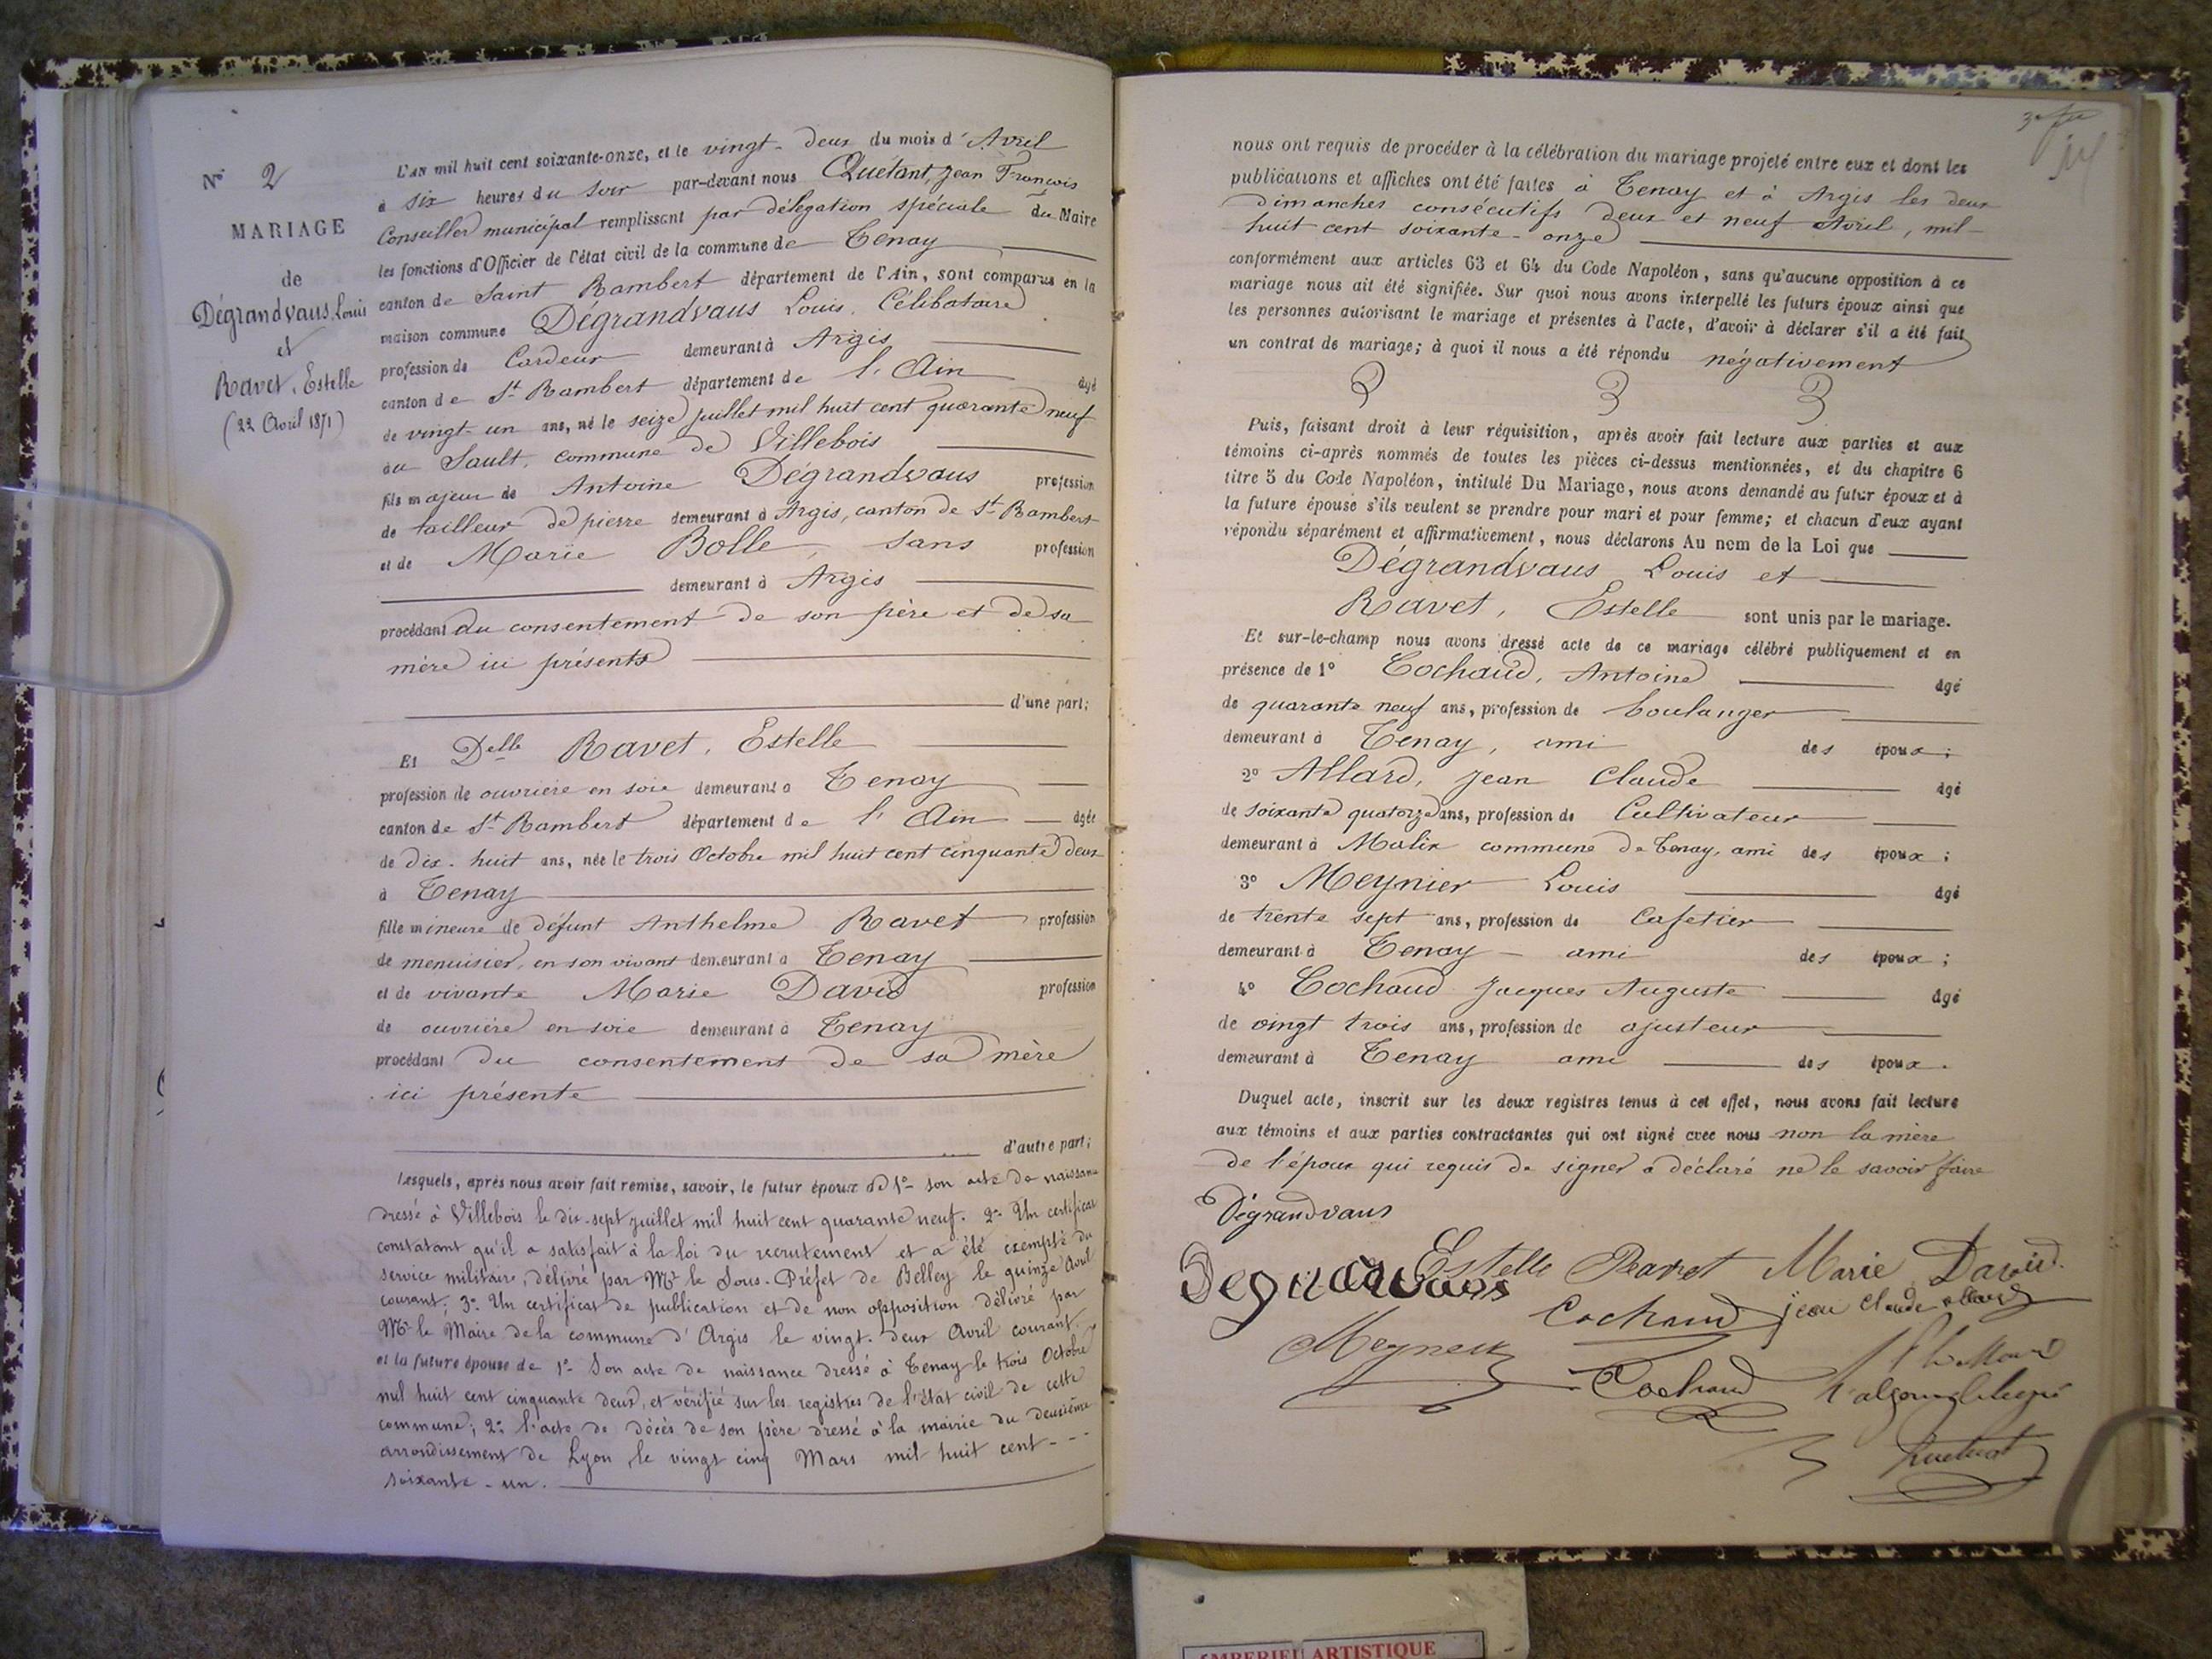 N° 2
MARIAGE
de
Dégrandvaus, Louis
et
Ravet, Estelle
(22 Avril 1871)
L'AN mil huit cent soixante-onze, et le vingt-deux du mois d'Avril
à six heures du soir par-devant nous Quétant, Jean François
Conseiller municipal remplissant par délégation spéciale du Maire
les fonctions d'Officier de l'état civil de la commune de Tenay
canton de Saint Rambert département de l'Ain, sont comparus en la
maison commune Dégrandvaus Louis, Célibataire
profession de Cardeur demeurant à Argis
canton de St Rambert département de l'Ain âgé
de vingt-un ans, né le seize juillet mil huit cent quarante neuf
au Sault, commune de Villebois
fils majeur de Antoine Dégrandvaus profession
de tailleur de pierre demeurant à Argis, canton de St Rambert
et de Marie Bolle, sans profession
demeurant à Argis
procédant du consentement de son père et de sa
mère ici présents
d'une part;
Et Delle Ravet, Estelle
profession de ouvrière en soie demeurant à Tenay
canton de St Rambert département de l'Ain âgée
de dix-huit ans, née le trois Octobre mil huit cent cinquante deux
à Tenay
fille mineure de défunt Anthelme Ravet profession
de menuisier, en son vivant demeurant à Tenay
et de vivante Marie David profession
de ouvrière en soie demeurant à Tenay
procédant du consentement de sa mère
ici présente
d'autre part;
Lesquels, après nous avoir fait remise, savoir, le futur époux de 1° son acte de naissance
dressé à Villebois le dix-sept juillet mil huit cent quarante neuf. 2° Un certificat
constatant qu'il a satisfait à la loi du recrutement et a été exempté du
service militaire, délivré par Mr le Sous-Préfet de Belley le quinze Avril
courant; 3° Un certificat de publication et de non opposition délivré par
Mr le Maire de la commune d'Argis le vingt-deux Avril courant,
et la future épouse de 1° Son acte de naissance dressé à Tenay le trois Octobre
mil huit cent cinquante deux, et vérifié sur les registres de l'état civil de cette
commune; 2° l'acte de décès de son père dressé à la mairie du deuxième
arrondissement de Lyon, le vingt cinq Mars mil huit cent
soixante-un.
nous ont requis de procéder à la célébration du mariage projeté entre eux et dont les
publications et affiches ont été faites à Tenay et à Argis les deux
dimanches consécutifs deux et neuf Avril, mil-
huit cent soixante-onze
conformément aux articles 63 et 64 du Code Napoléon, sans qu'aucune opposition à ce
mariage nous ait été signifiée. Sur quoi nous avons interpellé les futurs époux ainsi que
les personnes autorisant le mariage et présentes à l'acte, d'avoir à déclarer s'il a été fait
un contrat de mariage; à quoi il nous a été répondu négativement
Puis, faisant droit à leur réquisition, après avoir fait lecture aux parties et aux
témoins ci-après nommés de toutes les pièces ci-dessus mentionnées, et du chapitre 6
titre 5 du Code Napoléon, intitulé Du Mariage, nous avons demandé au futur époux et à
la future épouse s'ils veulent se prendre pour mari et pour femme; et chacun d'eux ayant
répondu séparément et affirmativement, nous déclarons Au nom de la Loi que
Dégrandvaus Louis et
Ravet, Estelle sont unis par le mariage.
Et sur-le-champ nous avons dressé acte de ce mariage célébré publiquement et en
présence de 1° Cochaud, Antoine âgé
de quarante neuf ans, profession de boulanger
demeurant à Tenay, ami des époux;
2° Allard, Jean Claude âgé
de soixante quatorze ans, profession de Cultivateur
demeurant à Malix commune de Tenay, ami des époux;
3° Meynier Louis âgé
de trente sept ans, profession de Cafetier
demeurant à Tenay ami des époux;
4° Cochaud Jacques Auguste âgé
de vingt trois ans, profession de ajusteur
demeurant à Tenay ami des époux.
Duquel acte, inscrit sur les deux registres tenus à cet effet, nous avons fait lecture
aux témoins et aux parties contractantes qui ont signé avec nous non la mère
de l'époux qui requis de signer a déclaré ne le savoir faire
Dégrandvaus
Estelle Ravet Marie David
Degrandvaus
Cochaud jean Claude allard
Meynier
Cochaud
Quétant
AMBERIEU ARTISTIQUE